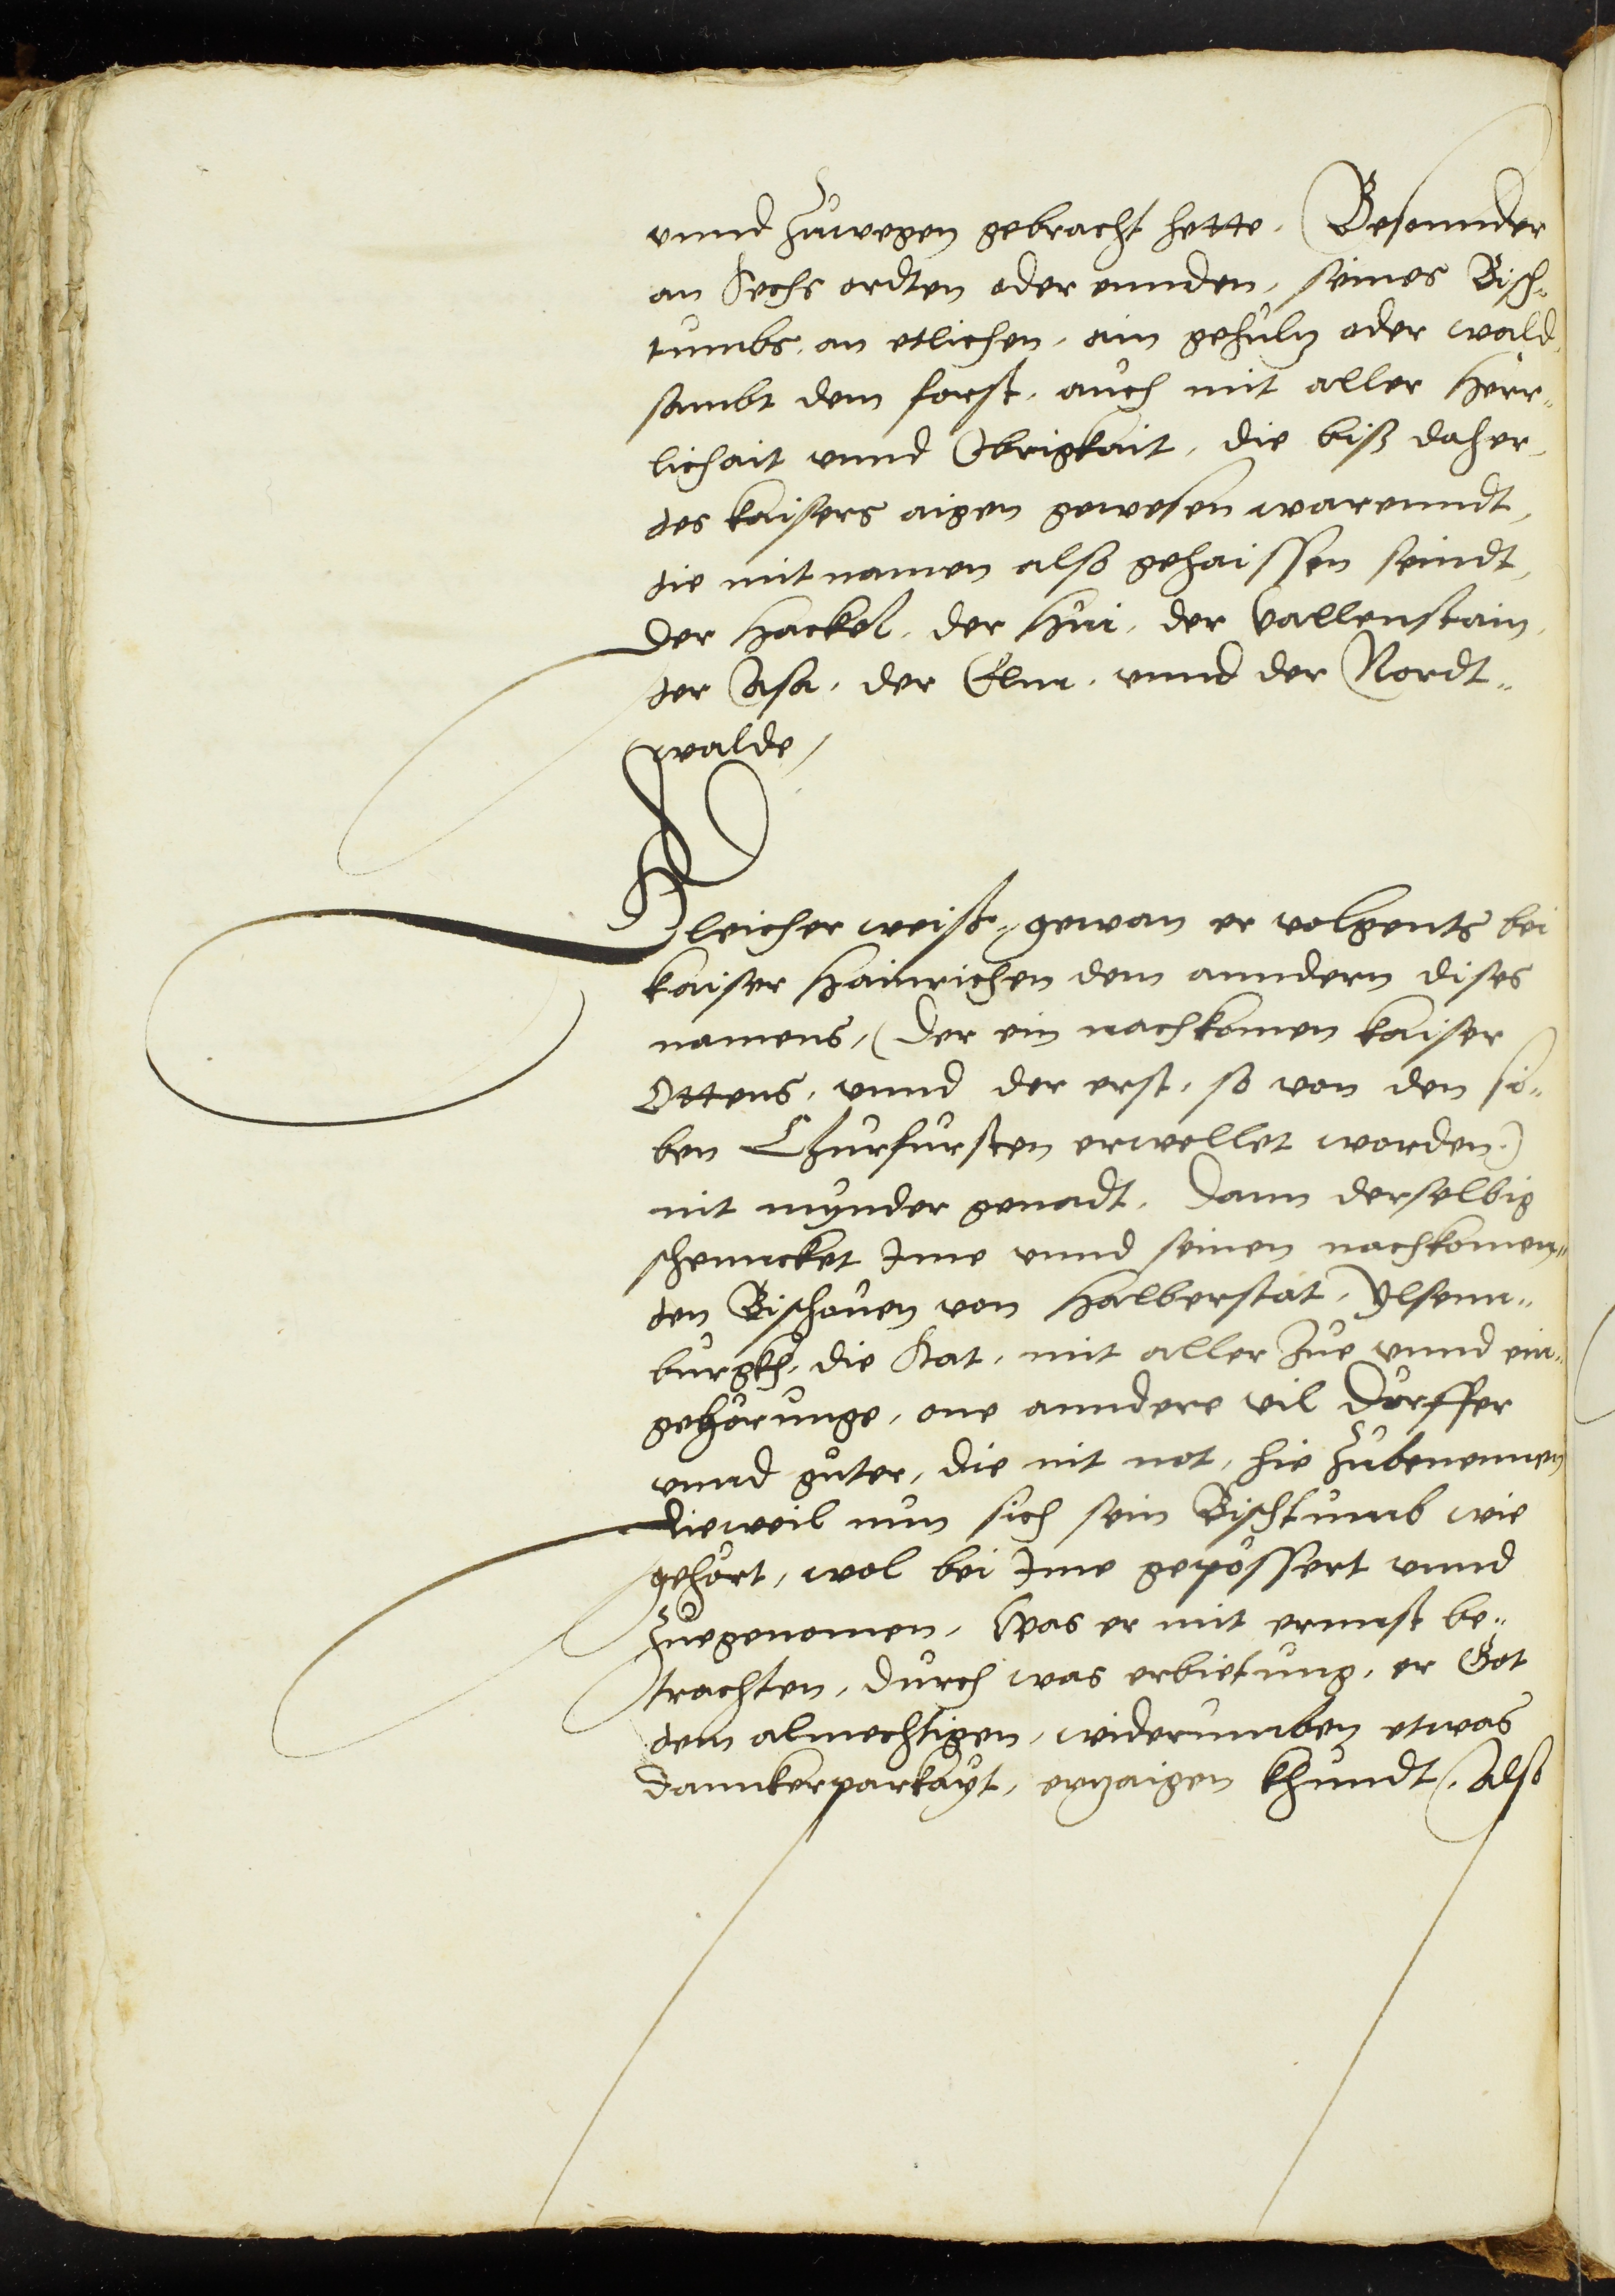 vnnd zuwegen gebracht hette, Besonnder
an Sechs ordten oder ennden, seines Bisch¬
tumbs, an etlichen, ain gehultz oder wald,
sambt dem forst, auch mit aller Herr¬
lichait vnnd Obrigkait, die biß daher,
des kaisers aigen gewesen warenndt,
die mit namen also gehaissen seindt,
der Hackel, der Hui, der Vallenstain,
der Asa, der Elm, vnnd der Nordt¬
walde,
Gleicher weiß, gewan er volgents bei
kaiser Hainrichen dem anndern dises
namens, (der ein nachkomen kaiser
Ottens, vnnd der erst, so von den si¬
ben Churfursten erwellet worden)
nit mynder genadt, Dann derselbig
schenncket Ime vnnd seinen nachkomen¬
den Bischouen von Halberstat, Ylsenn¬
burgkh, die Stat, mit aller Zue vnnd ein¬
gehörunge, one anndere vil Dörffer
vnnd güter, die nit not, hie zubenennen
dieweil nun sich sein Bischtumb wie
gehört, wol bei Ime gepössert vnnd
zuegenomen, Was er mit ernnst be¬
trachten, durch was erbietung, er Got
dem almechtigen, widerumben etwas
Dannckerparkayt, erzaigen khundt, Also